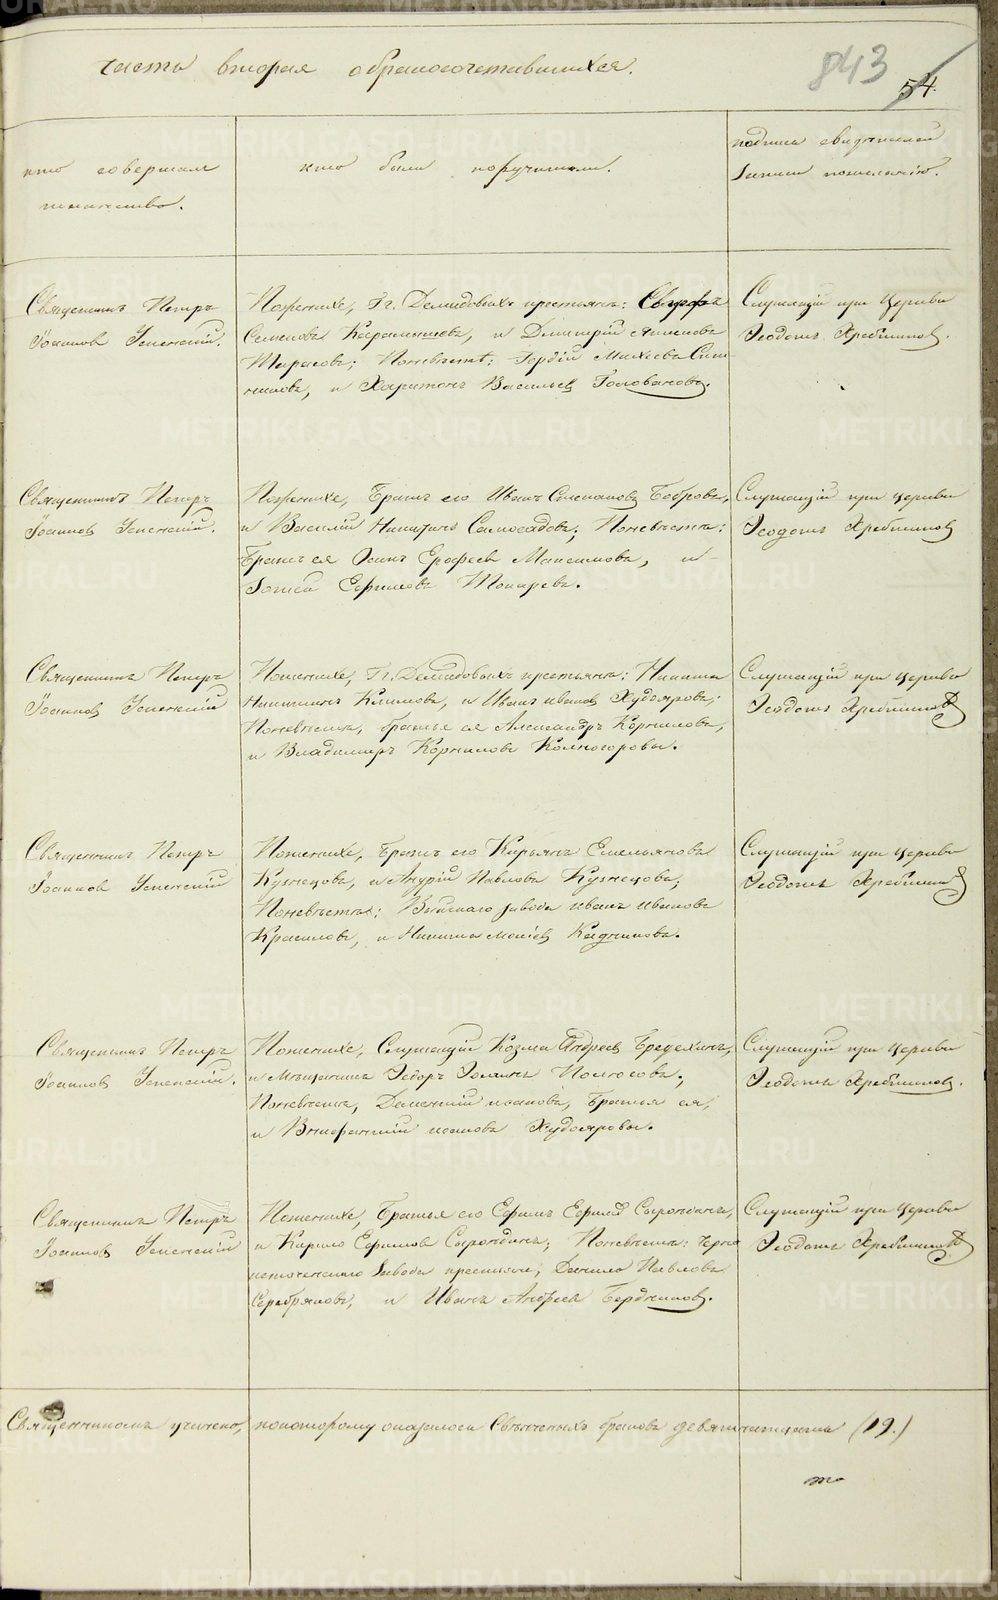 часть вторая о бракосочетавшихся.
843
54.
кто совершал
таинство.
кто были поручители.
подпись свидетелей
записи по желанію.
Священникъ Петръ
Іоанновъ Успенскій.
По женихѣ, Гг. Демидовыхъ крестьяне:
Семеновъ и Димитрій
Тарасовъ; По невѣстѣ: Гордѣй Михѣевъ
и Харитонъ Васильевъ Головановъ.
Служащій при церкви
Ѳеодотъ Хребтиковъ.
Священникъ Петръ
Іоанновъ Успенскій.
По женихѣ, братъ его Иванъ Степановъ Бобровъ,
и Василій Никитинъ Самосадовъ; По невѣстѣ:
братъ ея Осипъ Ерофеевъ Максимовъ, и
Ефимовъ Токаревъ.
Служащій при церкви
Ѳеодотъ Хребтиковъ
Священникъ Петръ
Іоанновъ Успенскій
По женихѣ, Гг. Демидовыхъ крестьяне: Никита
Никитинъ Климовъ, и Иванъ Ивановъ Худояровъ;
По невѣстѣ, братья ея Александръ Корниловъ,
и Владимиръ Корниловъ Колногоровы.
Служащій при церкви
Ѳеодотъ Хребтиковъ
Священникъ Петръ
Іоанновъ Успенскій
По женихѣ, братъ его Кирьянъ Емельяновъ
Кузнецовъ, и Гурій Павловъ Кузнецовъ;
По невѣстѣ: Выйскаго завода Иванъ Ивановъ
Красиловъ, и Никита
Служащій при церкви
Ѳеодотъ Хребтиковъ
Священникъ Петръ
Іоанновъ Успенскій.
По женихѣ, Служащій Козма Андреевъ
и мѣщанинъ Ѳедоръ
По невѣстѣ, Дементій Исаковъ, братья ея,
и Исаковъ Худояровы.
Служащій при церкви
Ѳеодотъ Хребтиковъ.
Священникъ Петръ
Іоанновъ Успенскій
По женихѣ, братья его Ефимъ Ефимовъ
и Кирило Ефимовъ По невѣстѣ: Черно
источенского завода крестьяне, Данило Павловъ
Серебряковъ, и Иванъ Андреевъ Бердниковъ.
Служащій при церкви
Ѳеодотъ Хребтиковъ
Священникомъ учинено, по которому оказалось Свѣнченныхъ браковъ девятнатцать (19.)
METRIKI.GASO-URAL.RU